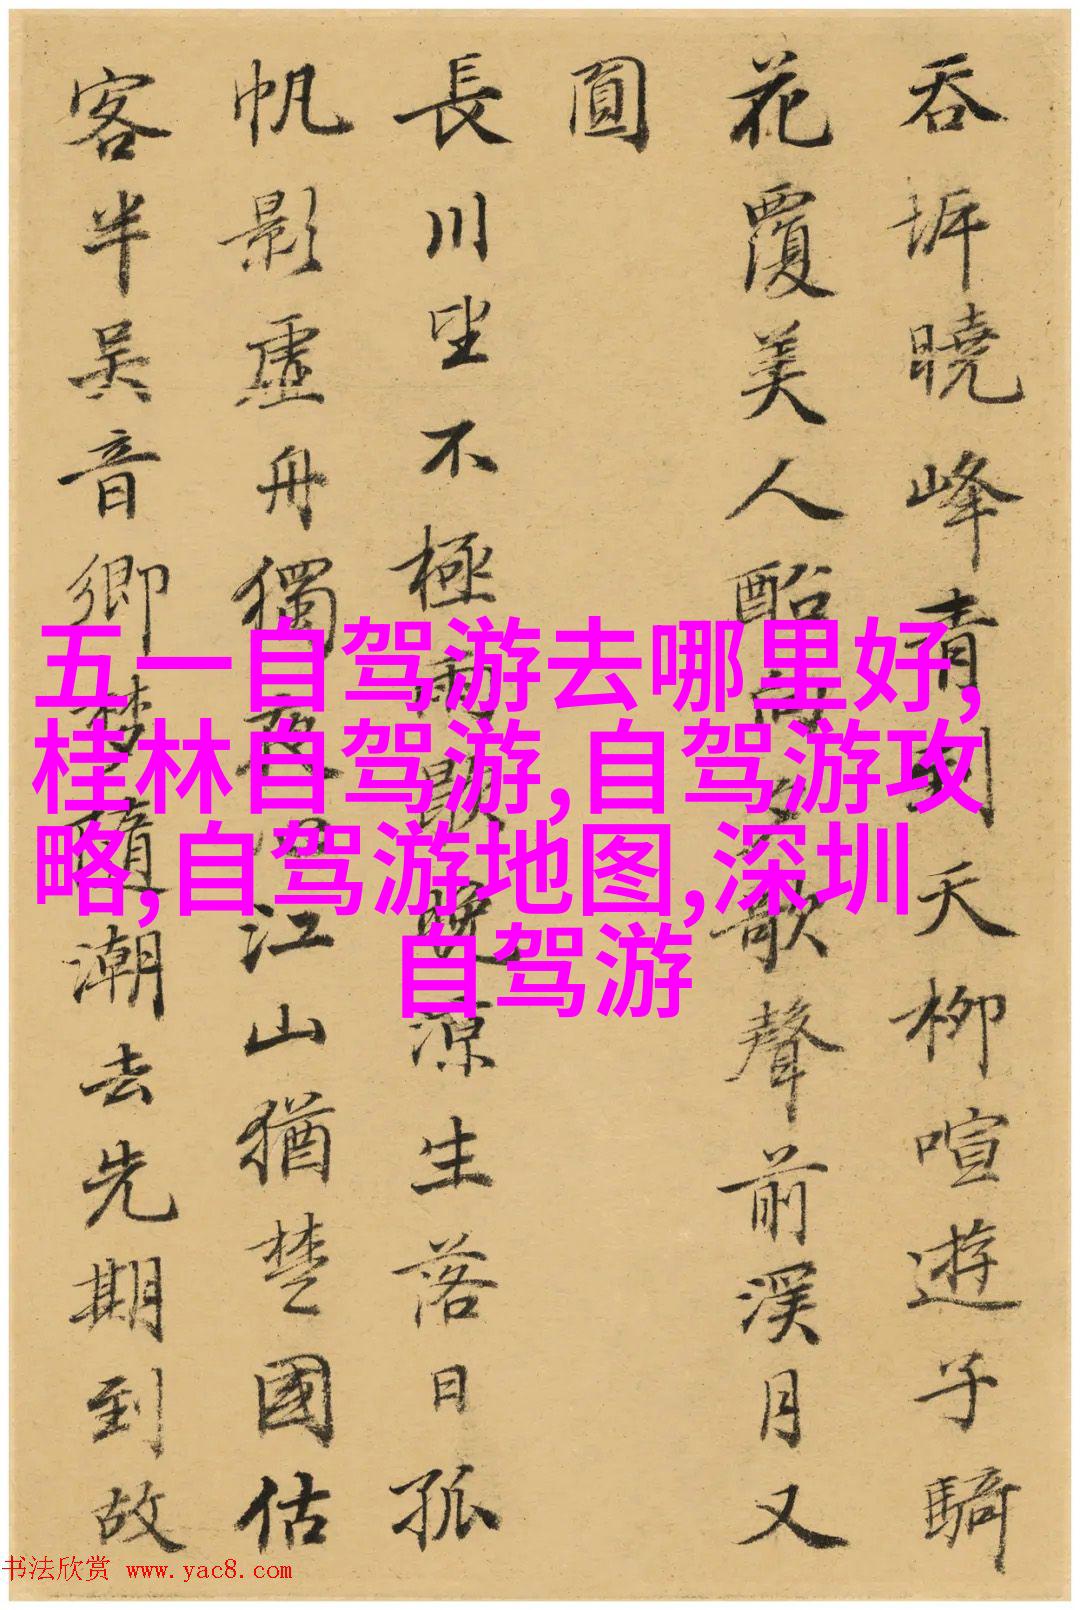 吞坼曉峰青刺天柳喧遊子騎
花覆美人船向夕歌聲前溪月又
圓
長川望不極雨歇晚涼生落日孤
帆影虛舟獨夜心江山猶楚國估
客半吳音鄉夢隨潮去先期到故
五一自驾游去哪里好,
桂林自驾游,自驾游攻
略,自驾游地图,深圳
自驾游
书法欣赏 www.yac8.com